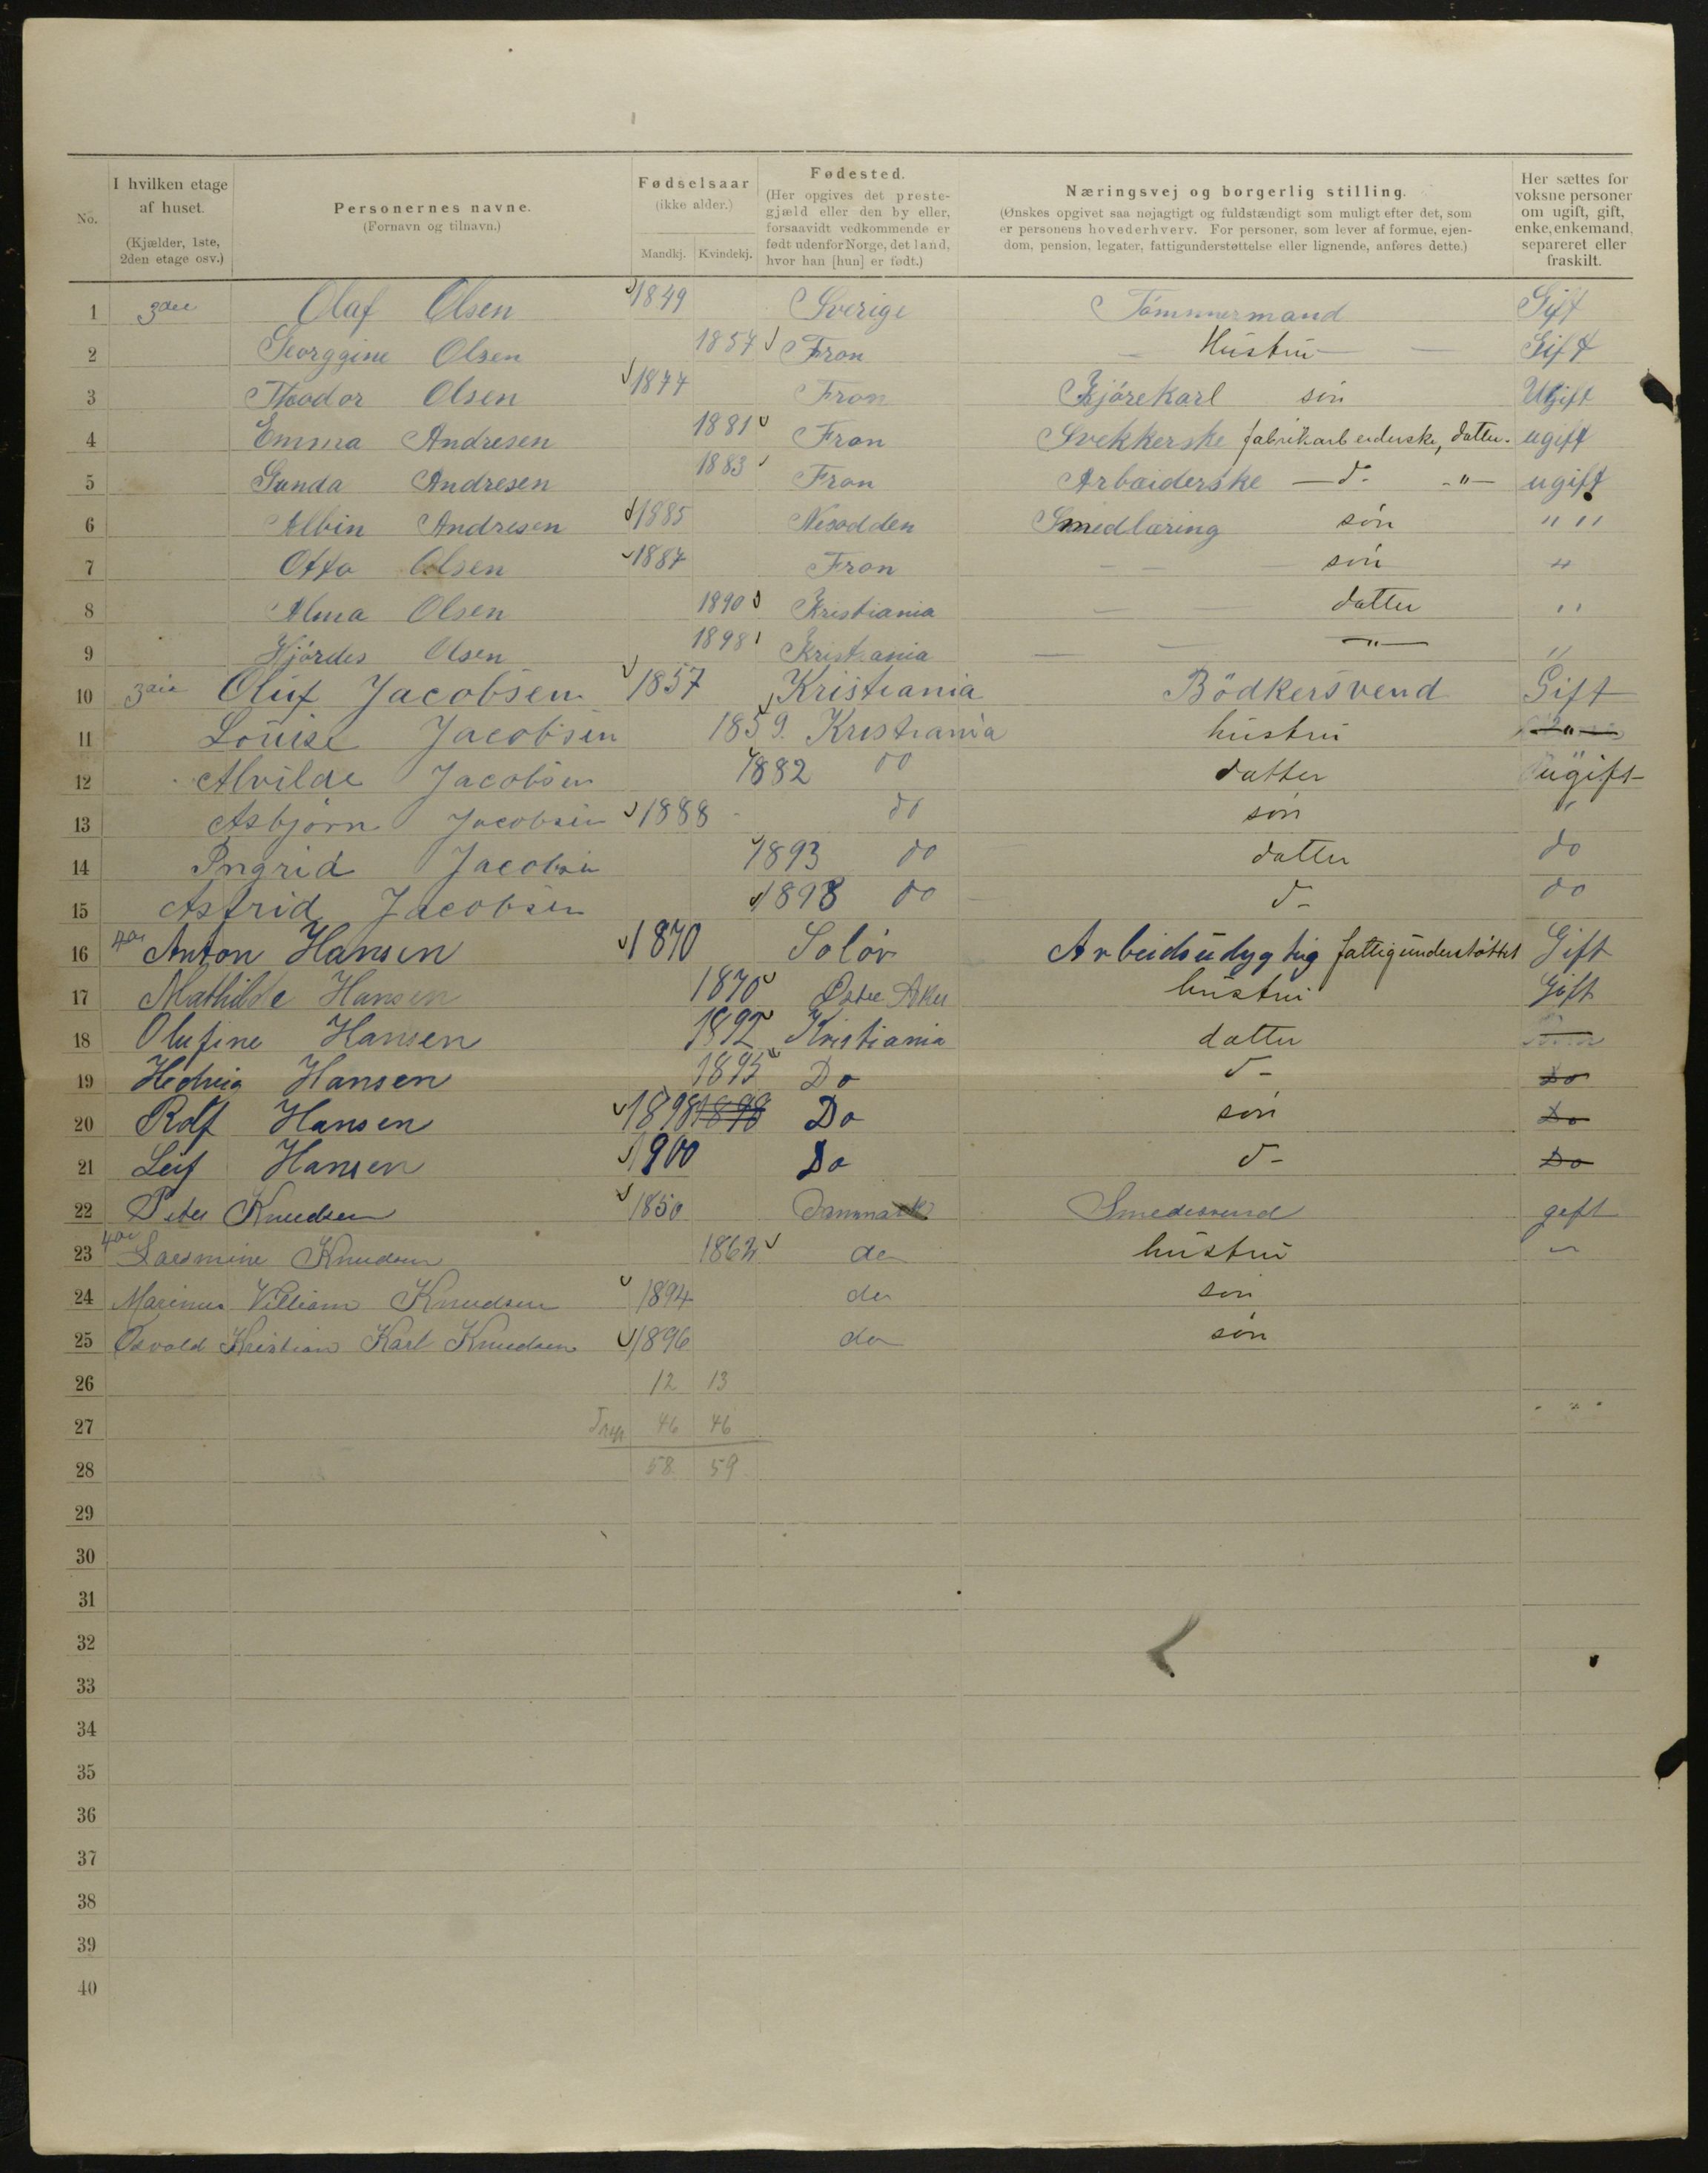 No.
I hvilken etage af huset.
(Kjælder, 1ste, 2den etage osv.)
Personernes navne.
(Fornavn og tilnavn.)
Fødselsaar
(ikke alder.)
Mandkj. Kvindekj.
Fødested.
(Her opgives det prestegjæld eller den by eller, forsaavidt vedkommende er født udenfor Norge, det land, hvor han [hun] er født.)
Næringsvej og borgerlig stilling.
(Ønskes opgivet saa nøjagtigt og fuldstændigt som muligt efter det, som er personens hovederhverv. For personer, som lever af formue, ejendom, pension, legater, fattigunderstøttelse eller lignende, anføres dette.)
Her sættes for voksne personer om ugift, gift, enke, enkemand, separeret eller fraskilt.
1 3die Olaf Olsen 1849 Sverige Tømmermand Gift
2 Georggine Olsen 1857 Fron — Hustru — Gift
3 Theodor Olsen 1877 Fron Kjørekarl søn Ugift
4 Emma Andresen 1881 Fron Svekkerske fabrikarbeiderske, datter. ugift
5 Gunda Andresen 1883 Fron Arbæiderske — d- -"- ugift
6 Albin Andresen 1885 Nesodden Smedlæring søn " "
7 Otto Olsen 1887 Fron — — søn "
8 Alma Olsen 1890 Kristiania — — datter "
9 Hjørdes Olsen 1898 Kristiania — — —"— "
10 3die Oluf Jacobsen 1857 Kristiania Bödkersvend Gift
11 Louise Jacobsen 1859. Kristiania hustru "
12 Alvilde Jacobsen 1882 do datter ugift
13 Asbjørn Jacobsen 1888 do søn "
14 Ingrid Jacobsen 1893 do datter do
15 Astrid Jacobsen 1898 do d- do
16 4de Anton Hansen 1870 Soløv Arbeidsudygtig fattigunderstøttet Gift
17 Mathilde Hansen 1870 Østre Aker hustru Gift
18 Olufine Hansen 1892 Kristiania datter
19 Hedvig Hansen 1895 Do d- Do
20 Rolf Hansen 1898 1898 Do søn Do
21 Leif Hansen 1900 Do d- Do
22 Peter Knudsen 1850 Danmark Smedesvend gift
23 4de Laesmine Knudsen 1862 do hustru "
24 Marinus Villiam Knudsen 1894 do søn
25 Osvald Kristian Karl Knudsen 1896 do søn
26 12 13
27 46 46
28 58 59
29
30
31
32
33
34
35
36
37
38
39
40